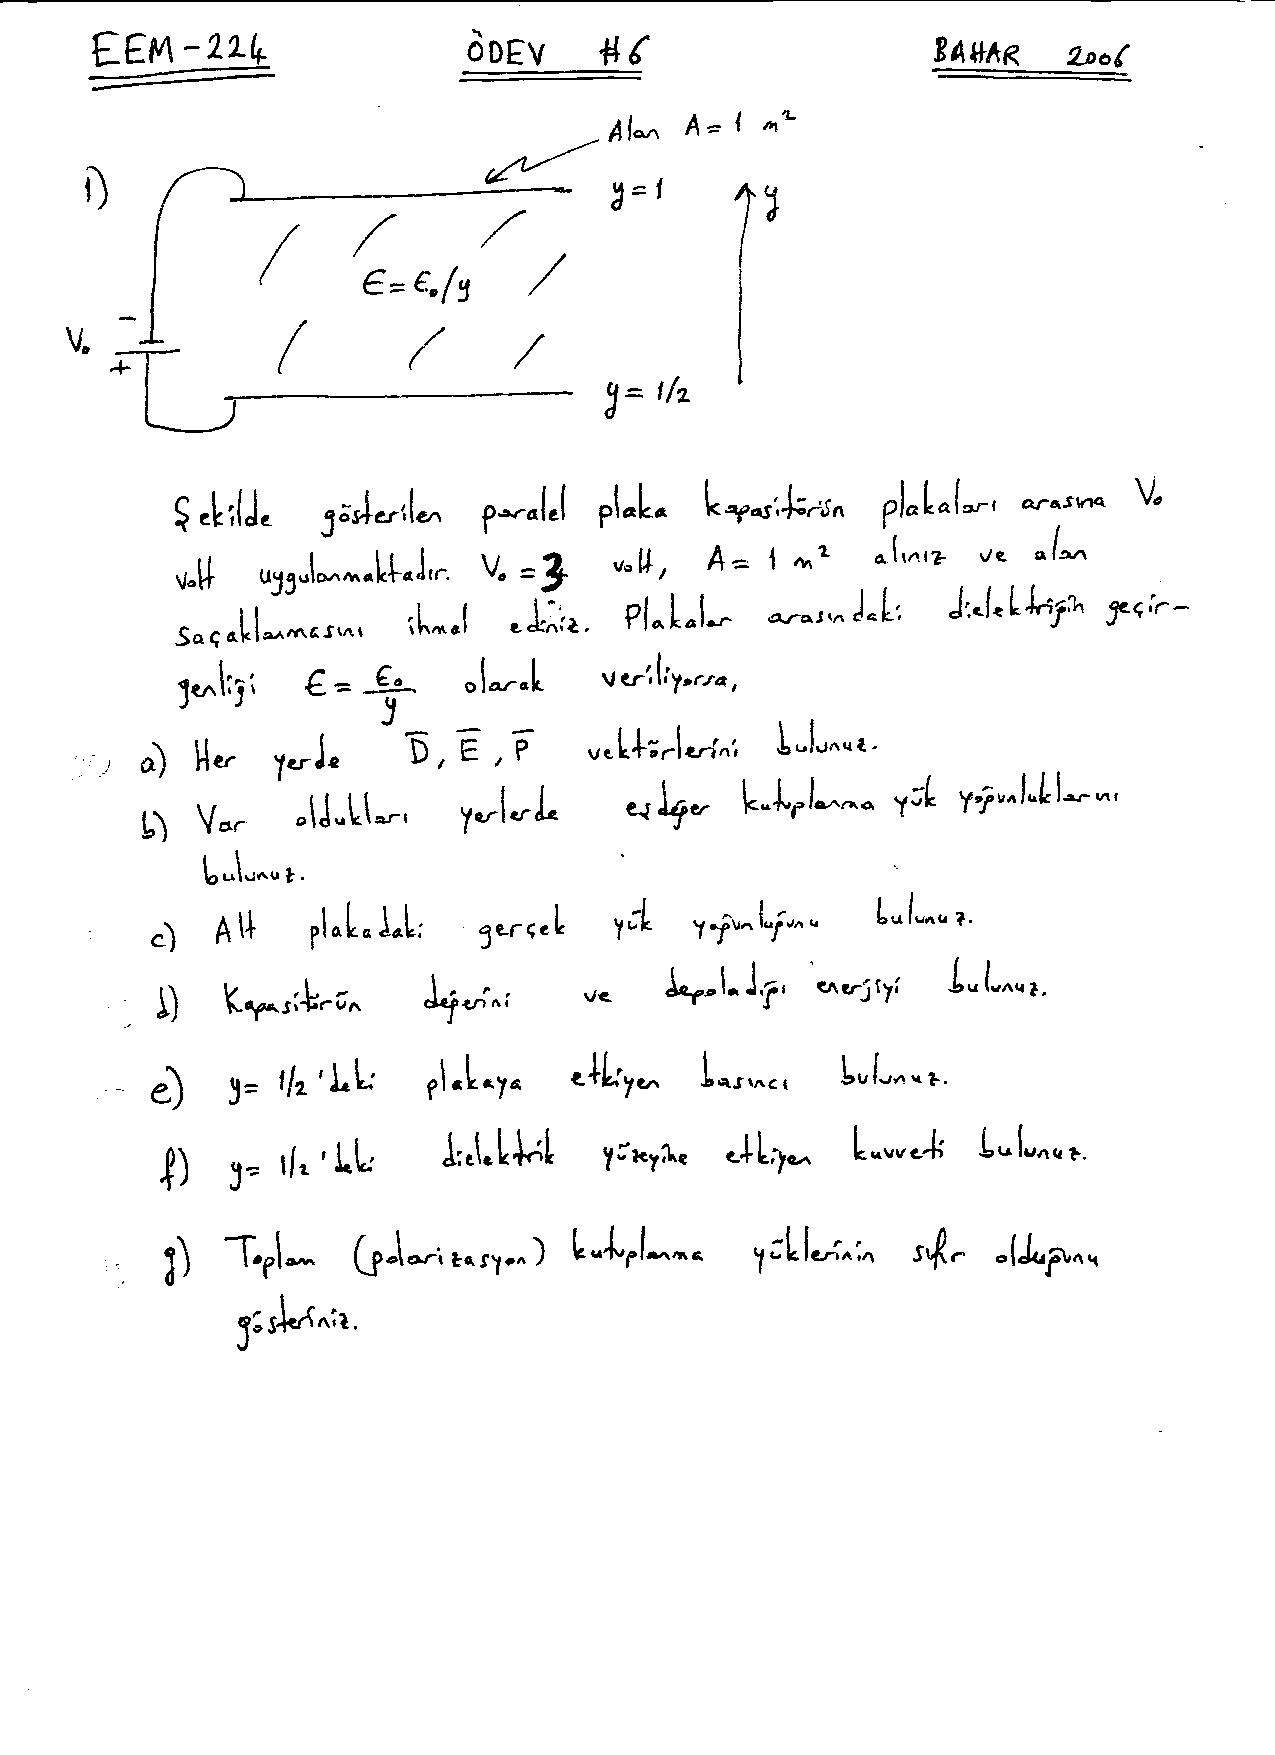 EEM-224 ÖDEV #6 BAHAR 2006
Alan A = 1 m²
1)
y = 1
y
ϵ = ϵ₀/y
-
V₀
+
y = 1/2
Şekilde gösterilen paralel plaka kapasitörün plakaları arasına V₀
volt uygulanmaktadır. V₀ = 3 volt, A = 1 m² alınız ve alan
saçaklanmasını ihmal ediniz. Plakalar arasındaki dielektriğin geçir-
genliği ϵ = ϵ₀/y olarak veriliyorsa,
a) Her yerde D̅, E̅, P̅ vektörlerini bulunuz.
b) Var oldukları yerlerde eşdeğer kutuplanma yük yoğunluklarını
bulunuz.
c) Alt plakadaki gerçek yük yoğunluğunu bulunuz.
d) Kapasitörün değerini ve depoladığı enerjiyi bulunuz.
e) y = 1/2 'deki plakaya etkiyen basıncı bulunuz.
f) y = 1/2 'deki dielektrik yüzeyine etkiyen kuvveti bulunuz.
g) Toplam (polarizasyon) kutuplanma yüklerinin sıfır olduğunu
gösteriniz.